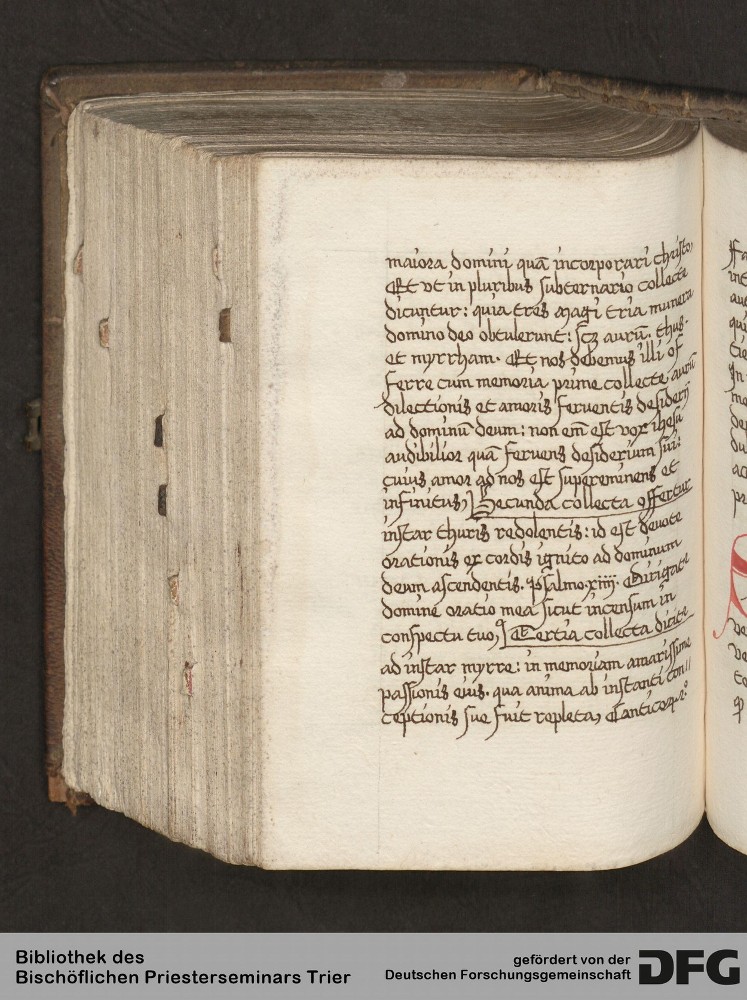 maiora domini quā incorporari christo,
Et vt in pluribus sub ternario collecte
dicuntur: quia tres magi tria munera
domino deo obtulerunt: scz aurū. thus.
et myrrham. Et nos debemus illi of
ferre cum memoria prime collecte aurū
dilectionis et amoris feruentis desiderij
ad dominū deum: non em̄ est vox ihesu
audibilior quā feruens desiderium sui:
cuius amor ad nos est supereminens et
infinitus, Secunda collecta offertur
instar thuris redolentis: id est deuote
orationis ex cordis ignito ad dominum
deum ascendentis. Psalmo. xiiij. Dirigate
domine oratio mea sicut incensum in
conspectu tuo, Tertia collecta dicite
ad instar myrre: in memoriam amarissime
passionis eius. qua anima ab instanti con//
ceptionis sue fuit repleta, Canticorꝝ 2º
Bibliothek des
Bischöflichen Priesterseminars Trier
gefördert von der
Deutschen Forschungsgemeinschaft
DFG